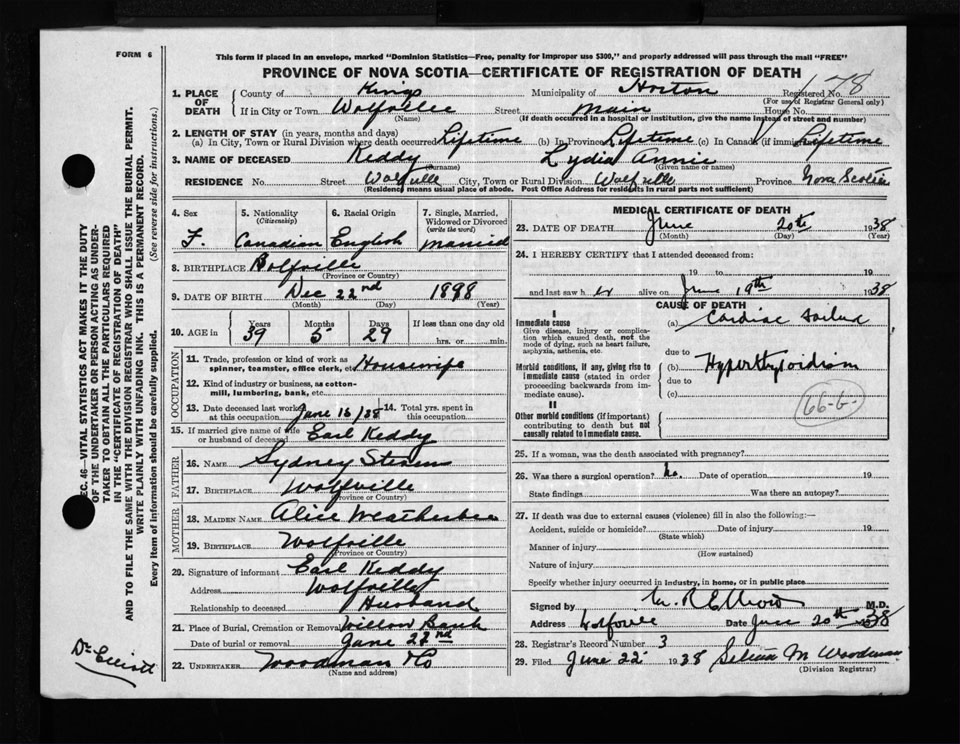 FORM 6
This form if placed in an envelope, marked "Dominion Statistics—Free, penalty for improper use $300," and properly addressed will pass through the mail "FREE"
PROVINCE OF NOVA SCOTIA—CERTIFICATE OF REGISTRATION OF DEATH
1. PLACE OF DEATH
County of Kings Municipality of Horton Registered No. 178
(For use of Registrar General only)
If in City or Town Wolfville Street Main House No.
(Name) (If death occurred in a hospital or institution, give the name instead of street and number)
2. LENGTH OF STAY (in years, months and days)
(a) In City, Town or Rural Division where death occurred Lifetime (b) In Province Lifetime (c) In Canada (if immi Lifetime
3. NAME OF DECEASED Keddy Lydia Annie
(Surname) (Given name or names)
RESIDENCE No. Street Wolfville City, Town or Rural Division Wolfville Province Nova Scotia
(Residence means usual place of abode. Post Office Address for residents in rural parts not sufficient)
4. Sex F.
5. Nationality (Citizenship) Canadian
6. Racial Origin English
7. Single, Married, Widowed or Divorced (write the word) Married
8. BIRTHPLACE Wolfville
(Province or Country)
9. DATE OF BIRTH Dec 22nd 1898
(Month) (Day) (Year)
10. AGE in Years Months Days If less than one day old
39 5 29 hrs. or min.
OCCUPATION
11. Trade, profession or kind of work as spinner, teamster, office clerk, etc. Housewife
12. Kind of industry or business, as cotton-mill, lumbering, bank, etc.
13. Date deceased last worked at this occupation June 16/38 14. Total yrs. spent in this occupation.
15. If married give name of wife or husband of deceased Earl Keddy
FATHER
16. NAME Sydney
17. BIRTHPLACE Wolfville
(Province or Country)
MOTHER
18. MAIDEN NAME Alice Weatherbee
19. BIRTHPLACE Wolfville
(Province or Country)
20. Signature of informant Earl Keddy
Address Wolfville
Relationship to deceased Husband
21. Place of Burial, Cremation or Removal Willow Bank
Date of burial or removal June 22nd
22. UNDERTAKER Woodman & Co
(Name and address)
MEDICAL CERTIFICATE OF DEATH
23. DATE OF DEATH June 20th 1938
(Month) (Day) (Year)
24. I HEREBY CERTIFY that I attended deceased from:
19 to 19
and last saw h er alive on June 19th 1938
CAUSE OF DEATH
I
Immediate cause
Give disease, injury or complication which caused death, not the mode of dying, such as heart failure, asphyxia, asthenia, etc.
(a) Cardiac failure
due to
Morbid conditions, if any, giving rise to immediate cause (stated in order proceeding backwards from immediate cause).
(b) Hyperthyroidism
due to
(c)
66-b
II
Other morbid conditions (if important) contributing to death but not causally related to immediate cause.
25. If a woman, was the death associated with pregnancy?
26. Was there a surgical operation? No. Date of operation 19
State findings Was there an autopsy?
27. If death was due to external causes (violence) fill in also the following:—
Accident, suicide or homicide? Date of injury 19
(State which)
Manner of injury
(How sustained)
Nature of injury
Specify whether injury occurred in industry, in home, or in public place
Signed by M.D.
Address Wolfville Date June 20th 1938
28. Registrar's Record Number 3
29. Filed June 22 1938 M Woodman
(Division Registrar)
SEC. 46—VITAL STATISTICS ACT MAKES IT THE DUTY
OF THE UNDERTAKER OR PERSON ACTING AS UNDER-
TAKER TO OBTAIN ALL THE PARTICULARS REQUIRED
IN THE "CERTIFICATE OF REGISTRATION OF DEATH"
AND TO FILE THE SAME WITH THE DIVISION REGISTRAR WHO SHALL ISSUE THE BURIAL PERMIT.
WRITE PLAINLY WITH UNFADING INK. THIS IS A PERMANENT RECORD.
Every item of information should be carefully supplied. (See reverse side for instructions.)
Dr Elliott